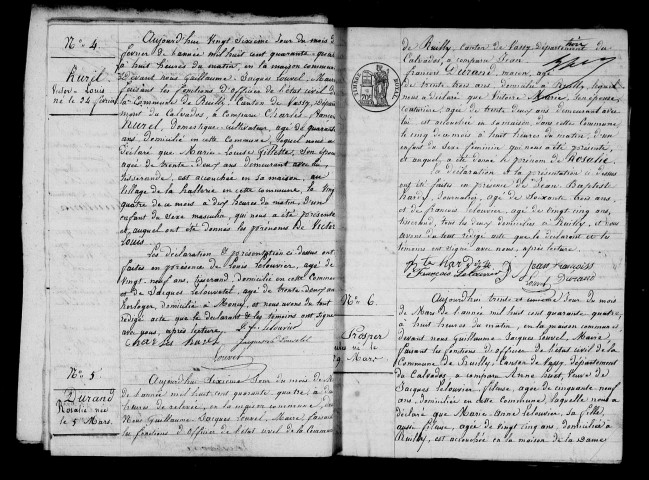 N° 4.
Hurel
Victor Louis
né le 24 février
Aujourd'hui vingt sixième jour du mois de
février de l'année mil huit cent quarante quatre
à huit heures du matin, en la maison commune
Devant nous Guillaume Jacques Louvel, Maire
faisant les fonctions d'officier de l'état civil de
la Commune de Reuilly, Canton de Vassy, Départe
ment du Calvados, a comparu Charles François
Hurel, Domestique cultivateur, agé de quarante
ans, domicilié en cette Commune, lequel nous a
déclaré que Marie Louise Lillette, son épouse
agée de trente deux ans demeurant avec lui
tisserande, est accouchée en sa maison, au
village de la hallerie en cette commune, le vingt
quatre de ce mois à dix heures du matin, d'un
enfant du sexe masculin, qui nous a été présenté
et auquel ont été donnés les prénoms de Victor
Louis.
Les déclaration & présentation ci dessus ont été
faites en présence de Louis Lelouvier, agé de
vingt neuf ans, tisserand, domicilié en cette commune
et de Jacques Lelouvier, agé de trente deux ans
horloger, domicilié à Moncy, et nous avons de tout
rédigé acte que le déclarant & les témoins ont signé
avec nous, après lecture.
Charles hurel
Louvel
N° 5.
Durand
Rosalie née
le 5 Mars.
Aujourd'hui sixième jour du mois de Mars
de l'année mil huit cent quarante quatre, à
heures de relevée, en la maison commune
Nous Guillaume Jacques Louvel, Maire faisant
les fonctions d'Officier de l'état civil de la Commune
de Reuilly, canton de Vassy, Département du
Calvados, a comparu Jean
François Durand, maçon, agé
de trente trois ans, domicilié à Reuilly, lequel
nous a déclaré que Victoire Marie,
Catherine, agée de trente deux ans demeurant avec
lui est accouchée en sa maison, dans cette Commune
le cinq de ce mois à huit heures du matin, d'un
enfant du sexe féminin qui nous a été présenté,
et auquel a été donné le prénom de Rosalie
La déclaration et la présentation ci dessus
ont été faites en présence de Jean Baptiste
hardy, journalier, agé de soixante trois ans,
et de françois Lelouvier, agé de vingt cinq ans,
tisserand, tous les deux domiciliés à Reuilly, et nous
avons du tout rédigé acte que le déclarant et les
témoins ont signé avec nous, après lecture.
françois Lelouvier
Jean françois
Durand
N° 6.
Prosper
né le
29 Mars
Aujourd'hui trente et unième jour du mois
de Mars de l'année mil huit cent quarante quatre,
à huit heures du matin, en la maison commune
devant nous Guillaume Jacques Louvel, Maire
faisant les fonctions d'officier de l'état civil de la
Commune de Reuilly, Canton de Vassy, département
du Calvados a comparu Anne huet, Veuve de
Jacques Lelouvier, fileuse, agée de cinquante neuf
ans, domiciliée en cette Commune, laquelle nous a
déclaré que Marie Anne Lelouvier, sa fille,
aussi fileuse, agée de vingt cinq ans, domiciliée à
Reuilly, est accouchée en la maison de la dame